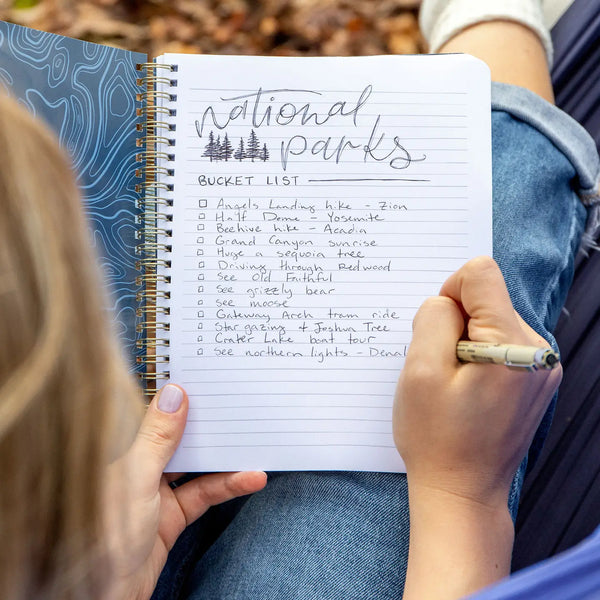 national
parks
BUCKET LIST
Angels Landing hike - Zion
Half Dome - Yosemite
Beehive hike - Acadia
Grand Canyon sunrise
Huge a sequoia tree
Driving through Redwood
See Old Faithful
See grizzly bear
see moose
Gateway Arch tram ride
Star gazing & Joshua Tree
Crater Lake boat tour
See northern lights - Denal